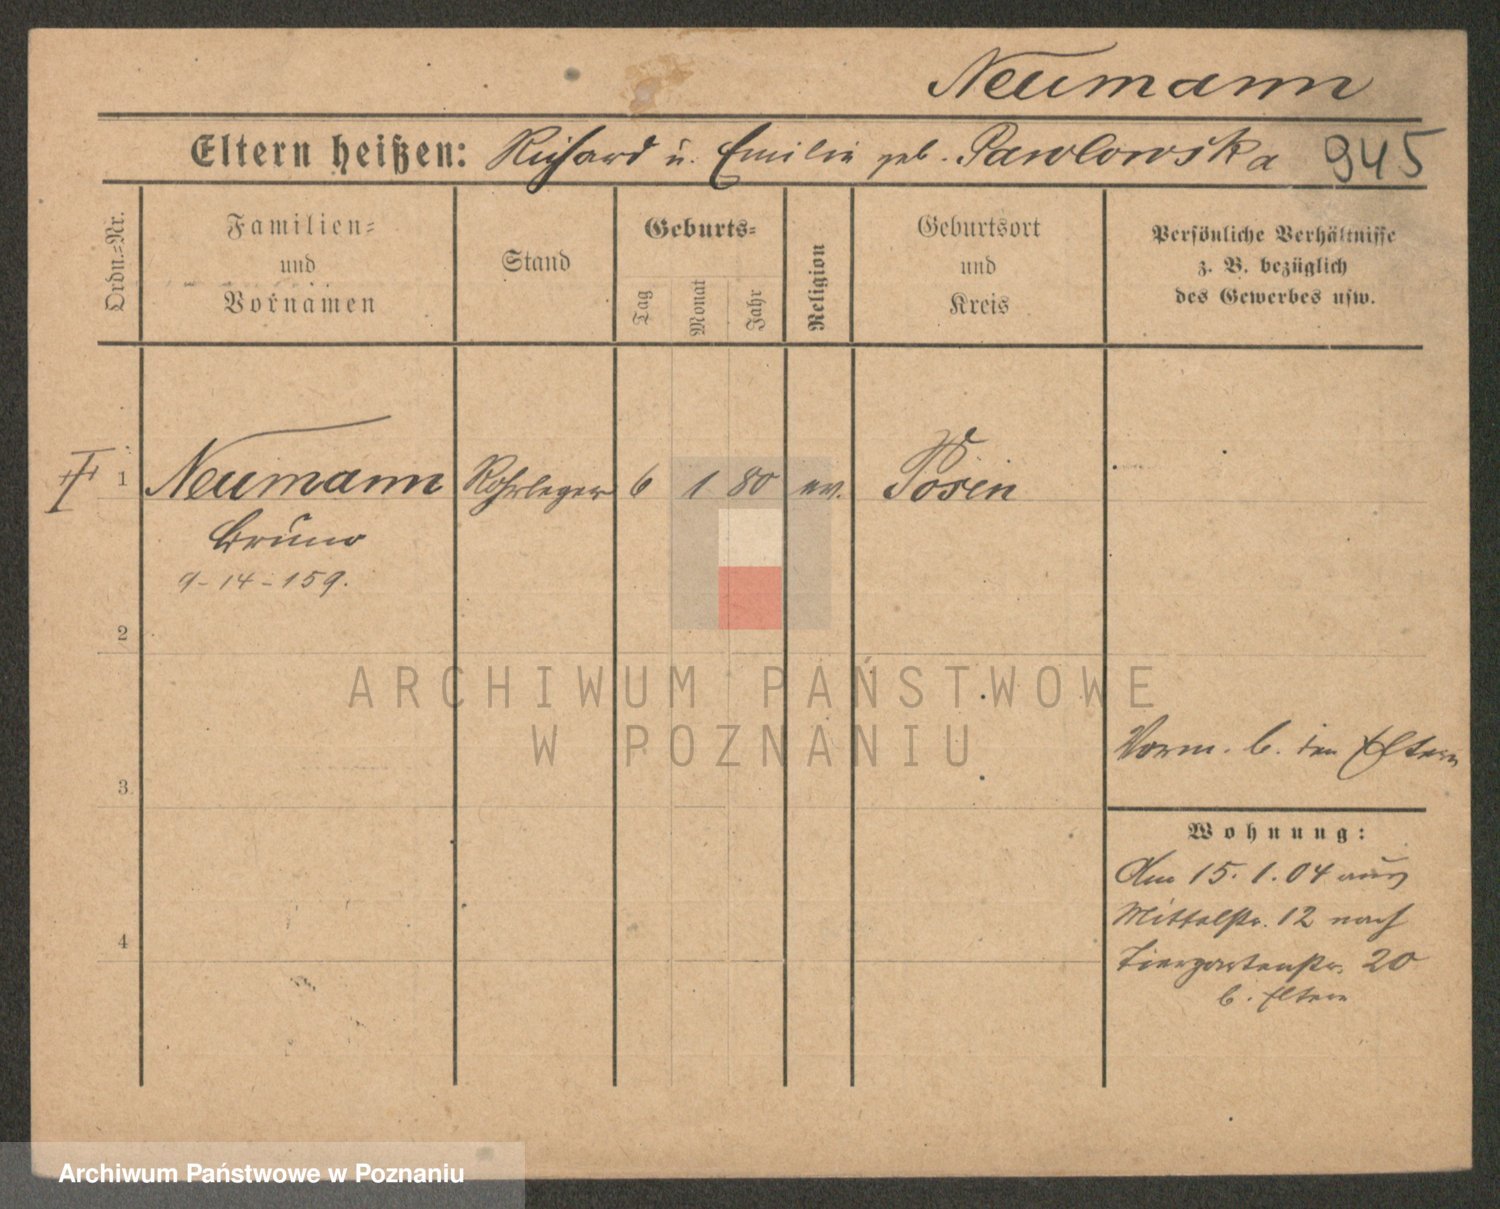 Neumann
Eltern heißen: Richard u. Emilie geb. Pawlowska 945
Ordn.=Nr.
Familien=
und
Vornamen
Stand
Geburts=
Tag
Monat
Jahr
Religion
Geburtsort
und
Kreis
Persönliche Verhältnisse
z. B. bezüglich
des Gewerbes usw.
1 Neumann Rohrleger 6 1 80 ev. Posen
Bruno
9-14-159.
2
ARCHIWUM PAŃSTWOWE
W POZNANIU
Vorm. b. den Eltern
3
Wohnung:
Am 15.1.04 aus
Mittelstr. 12 nach
4
Tiergartenstr. 20
b. Eltern
Archiwum Państwowe w Poznaniu